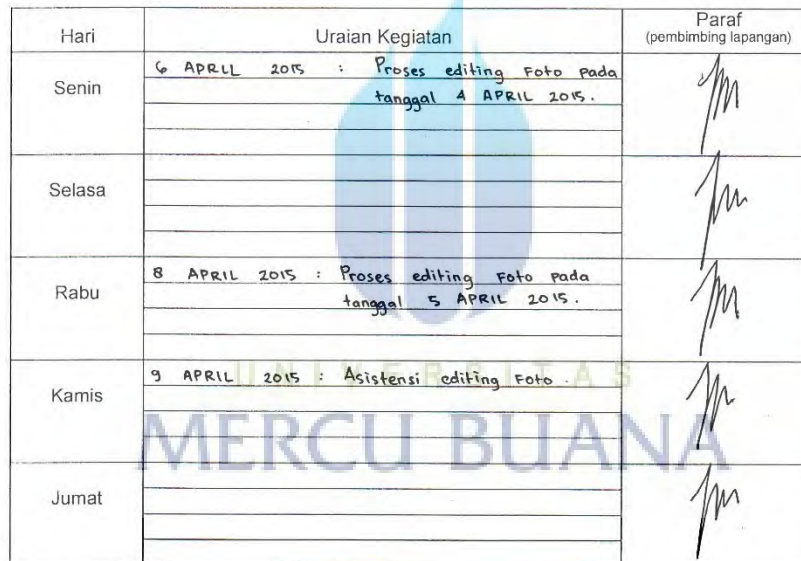 Hari Uraian Kegiatan Paraf
(pembimbing lapangan)
Senin
6 APRIL 2015 : Proses editing Foto pada
tanggal 4 APRIL 2015.
Selasa
Rabu
8 APRIL 2015 : Proses editing Foto pada
tanggal 5 APRIL 2015.
Kamis
9 APRIL 2015 : Asistensi editing Foto.
UNIVERSITAS
MERCU BUANA
Jumat